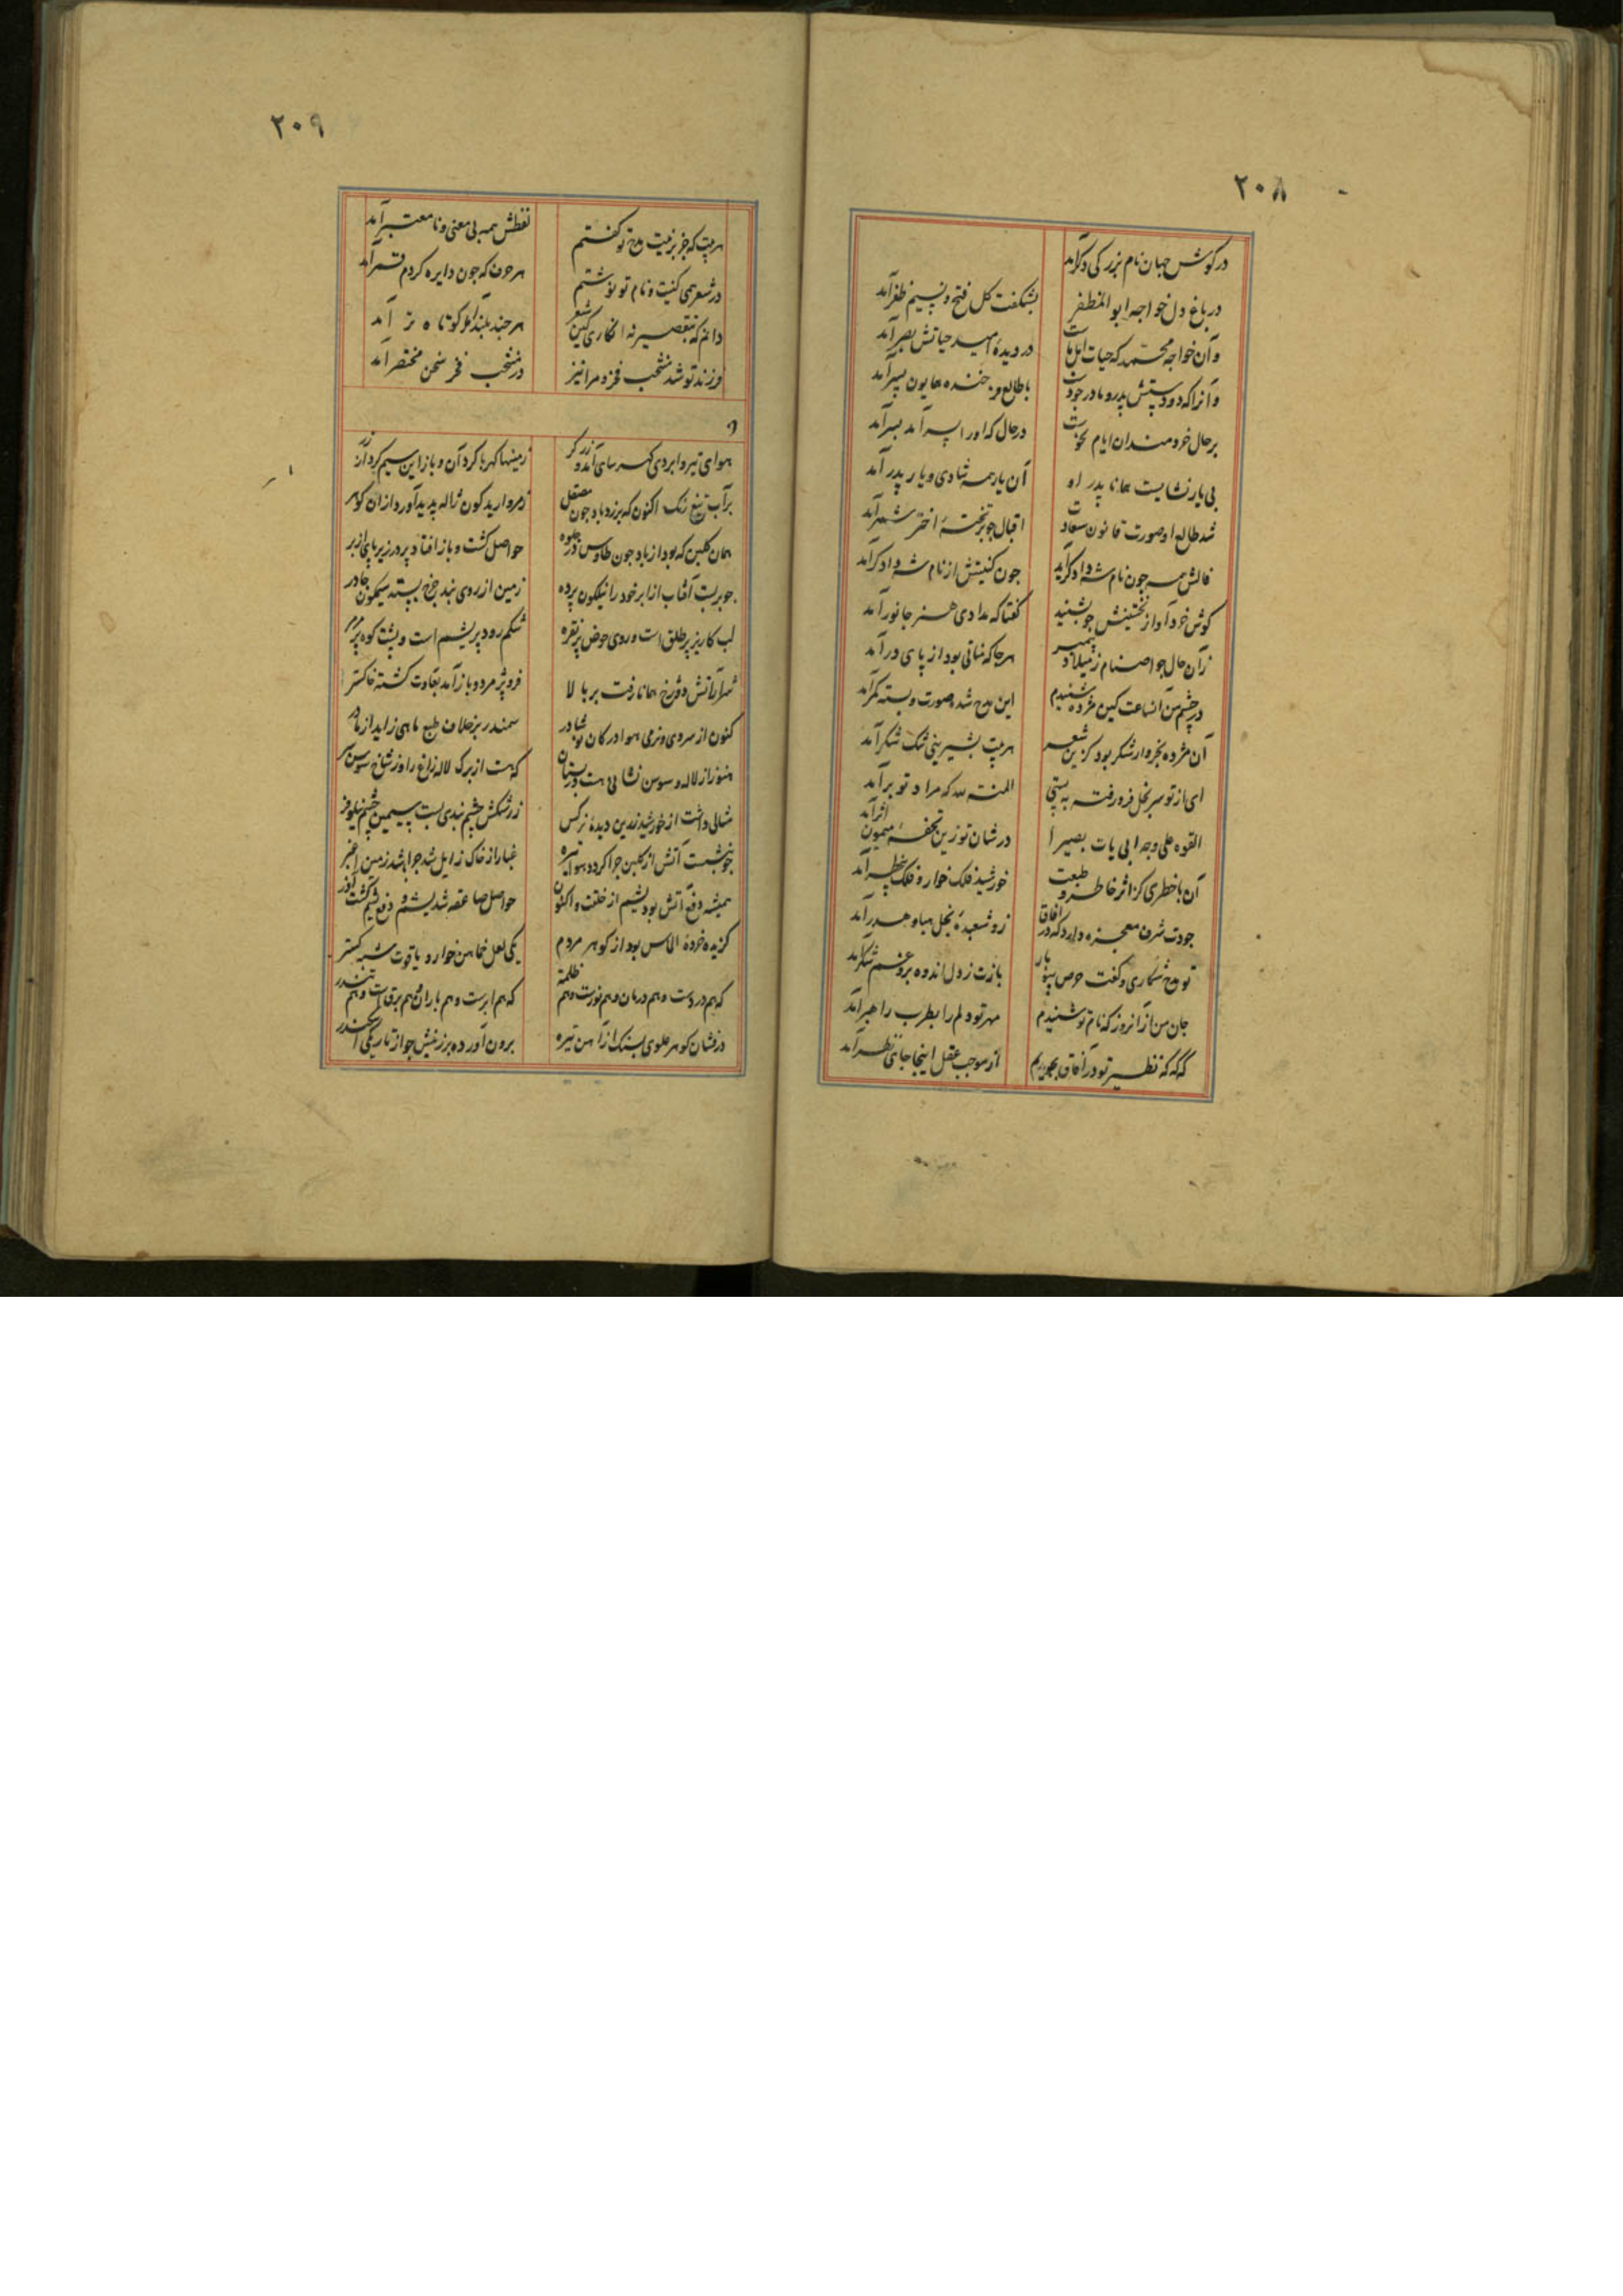 ۲۰۸
در کوش جهان نام بزرکی دکر آمد
در باغ دل خواجه ابو المظفر بشکفت کل فتح و نسیم ظفر آمد
وآن خواجه محمد که حیات در دیده امید حیاتش بصر آمد
وآنرا که پدر و مادر با طالع فرخنده همایون بسر آمد
بر حال خردمندان ایام در حال که او را پسر آمد بسر آمد
بی یار نشایست همانا پدر او آن یار همه شادی و یار پدر آمد
شد طالع او صورت قانون سعادت اقبال چو بر تخته اختر شمر آمد
فالش همه چون نام شه دادکر آمد چون کنیتش از نام شه دادکر آمد
کوش خرد آواز نخستینش چو بشنید کفتا که هنر جانور آمد
زان حال چو اصنام ز میلاد پیمبر هر جا که بود از پای در آمد
در چشم من آنساعت کین مژده شنیدم این مدح شد و صورت و بسته کمر آمد
آن مژده بخروار شکر بود کزین شعر هر بیت بشیرینی تنک شکر آمد
ای از تو سر بخل فرو رفته به پستی المنة لله که مراد تو بر آمد
القوه علی وجه ابی یات بصیرا در شان تو زین تحفه میمون اثر آمد
آن با خطری کز اثر خاطر و طبعت خورشید فلک خوار و فلک آمد
جودت شرف معجزه دارد که در آفاق زو شعبده بخل هبا و هدر آمد
تو مدح شکاری و کفت حرص بازت ز دل اندوه بر و غم شکر آمد
جان من از آنروز که نام تو شنیدم مهر تو دلم را بطرب راهبر آمد
که که که نظیر تو در آفاق بجویم از موجب عقل اینجا جای نظر آمد
۲۰۹
هر بیت که جز بر نیت مدح تو کفتم لفظش همه بی معنی و نا معتبر آمد
در شعر همی کنیت و نام تو نوشتم هر حرف که چون دایره کردم قمر آمد
دانم که بتقصیر نه انکاری کین شعر هر چند بلند آمد کوتاه تر آمد
فرزند تو شد منتخب فخر و مرا نیز در منتخب فخر سخن مختصر آمد
هوای تیره و ابر دی کهر سای آمد و زرکر زمینها کهربا کرد آن و باز این سیم کرد از زر
بر آب تیغ رنک اکنون که برزد باد چون صیقل ز مروارید کون ژاله پدید آورد از آن کوهر
همان کلبن که بود از باد چون طاوس در جلوه حواصل کشت و باز افتاد پر در زیر پای از بر
چو بربست آفتاب از ابر خود را نیلکون پرده زمین از روی بند چرخ بستد سیمکون چادر
لب کاریز پر طلق است و روی حوض پر نقره شکم رود پر یشم است و پشت کوه پر مرمر
شرار آتش دوزخ همانا رفت بر بالا فرو پژمرد و باز آمد بقاوت کشته خاکستر
کنون از سردی و نرمی هوا در کان سمندر بر خلاف طبع ماهی زاید از مادر
هنوز از لاله و سوسن نشانی هست در بستان که هست از برک لاله زاغ را وز شاخ سوسن
مثالی داشت از خورشید زرین دیده نرکس ز رشکش چشم بندی بست پر سیمین چشم نیلوفر
چو بنشست آتش از کلبن چرا کردد هوا تیره غبار از خاک زایل شد چرا باشد زمین اغبر
همیشه دفع آتش بود یشم از خلقت و اکنون حواصل صاعقه شد یشم و دفع یشم کشت آذر
کزیده خرده الماس بود از کوهر مردم یکی لعل خماهن خوار و یاقوت شبه کستر
که هم دردست و هم درمان و هم نورست و هم ظلمة که هم ابرست و هم باران و هم برق است و هم تندر
درفشان کوهر علوی بسنک از آهن تیره برون آورده بر زینش چو از تاریکی اسکندر